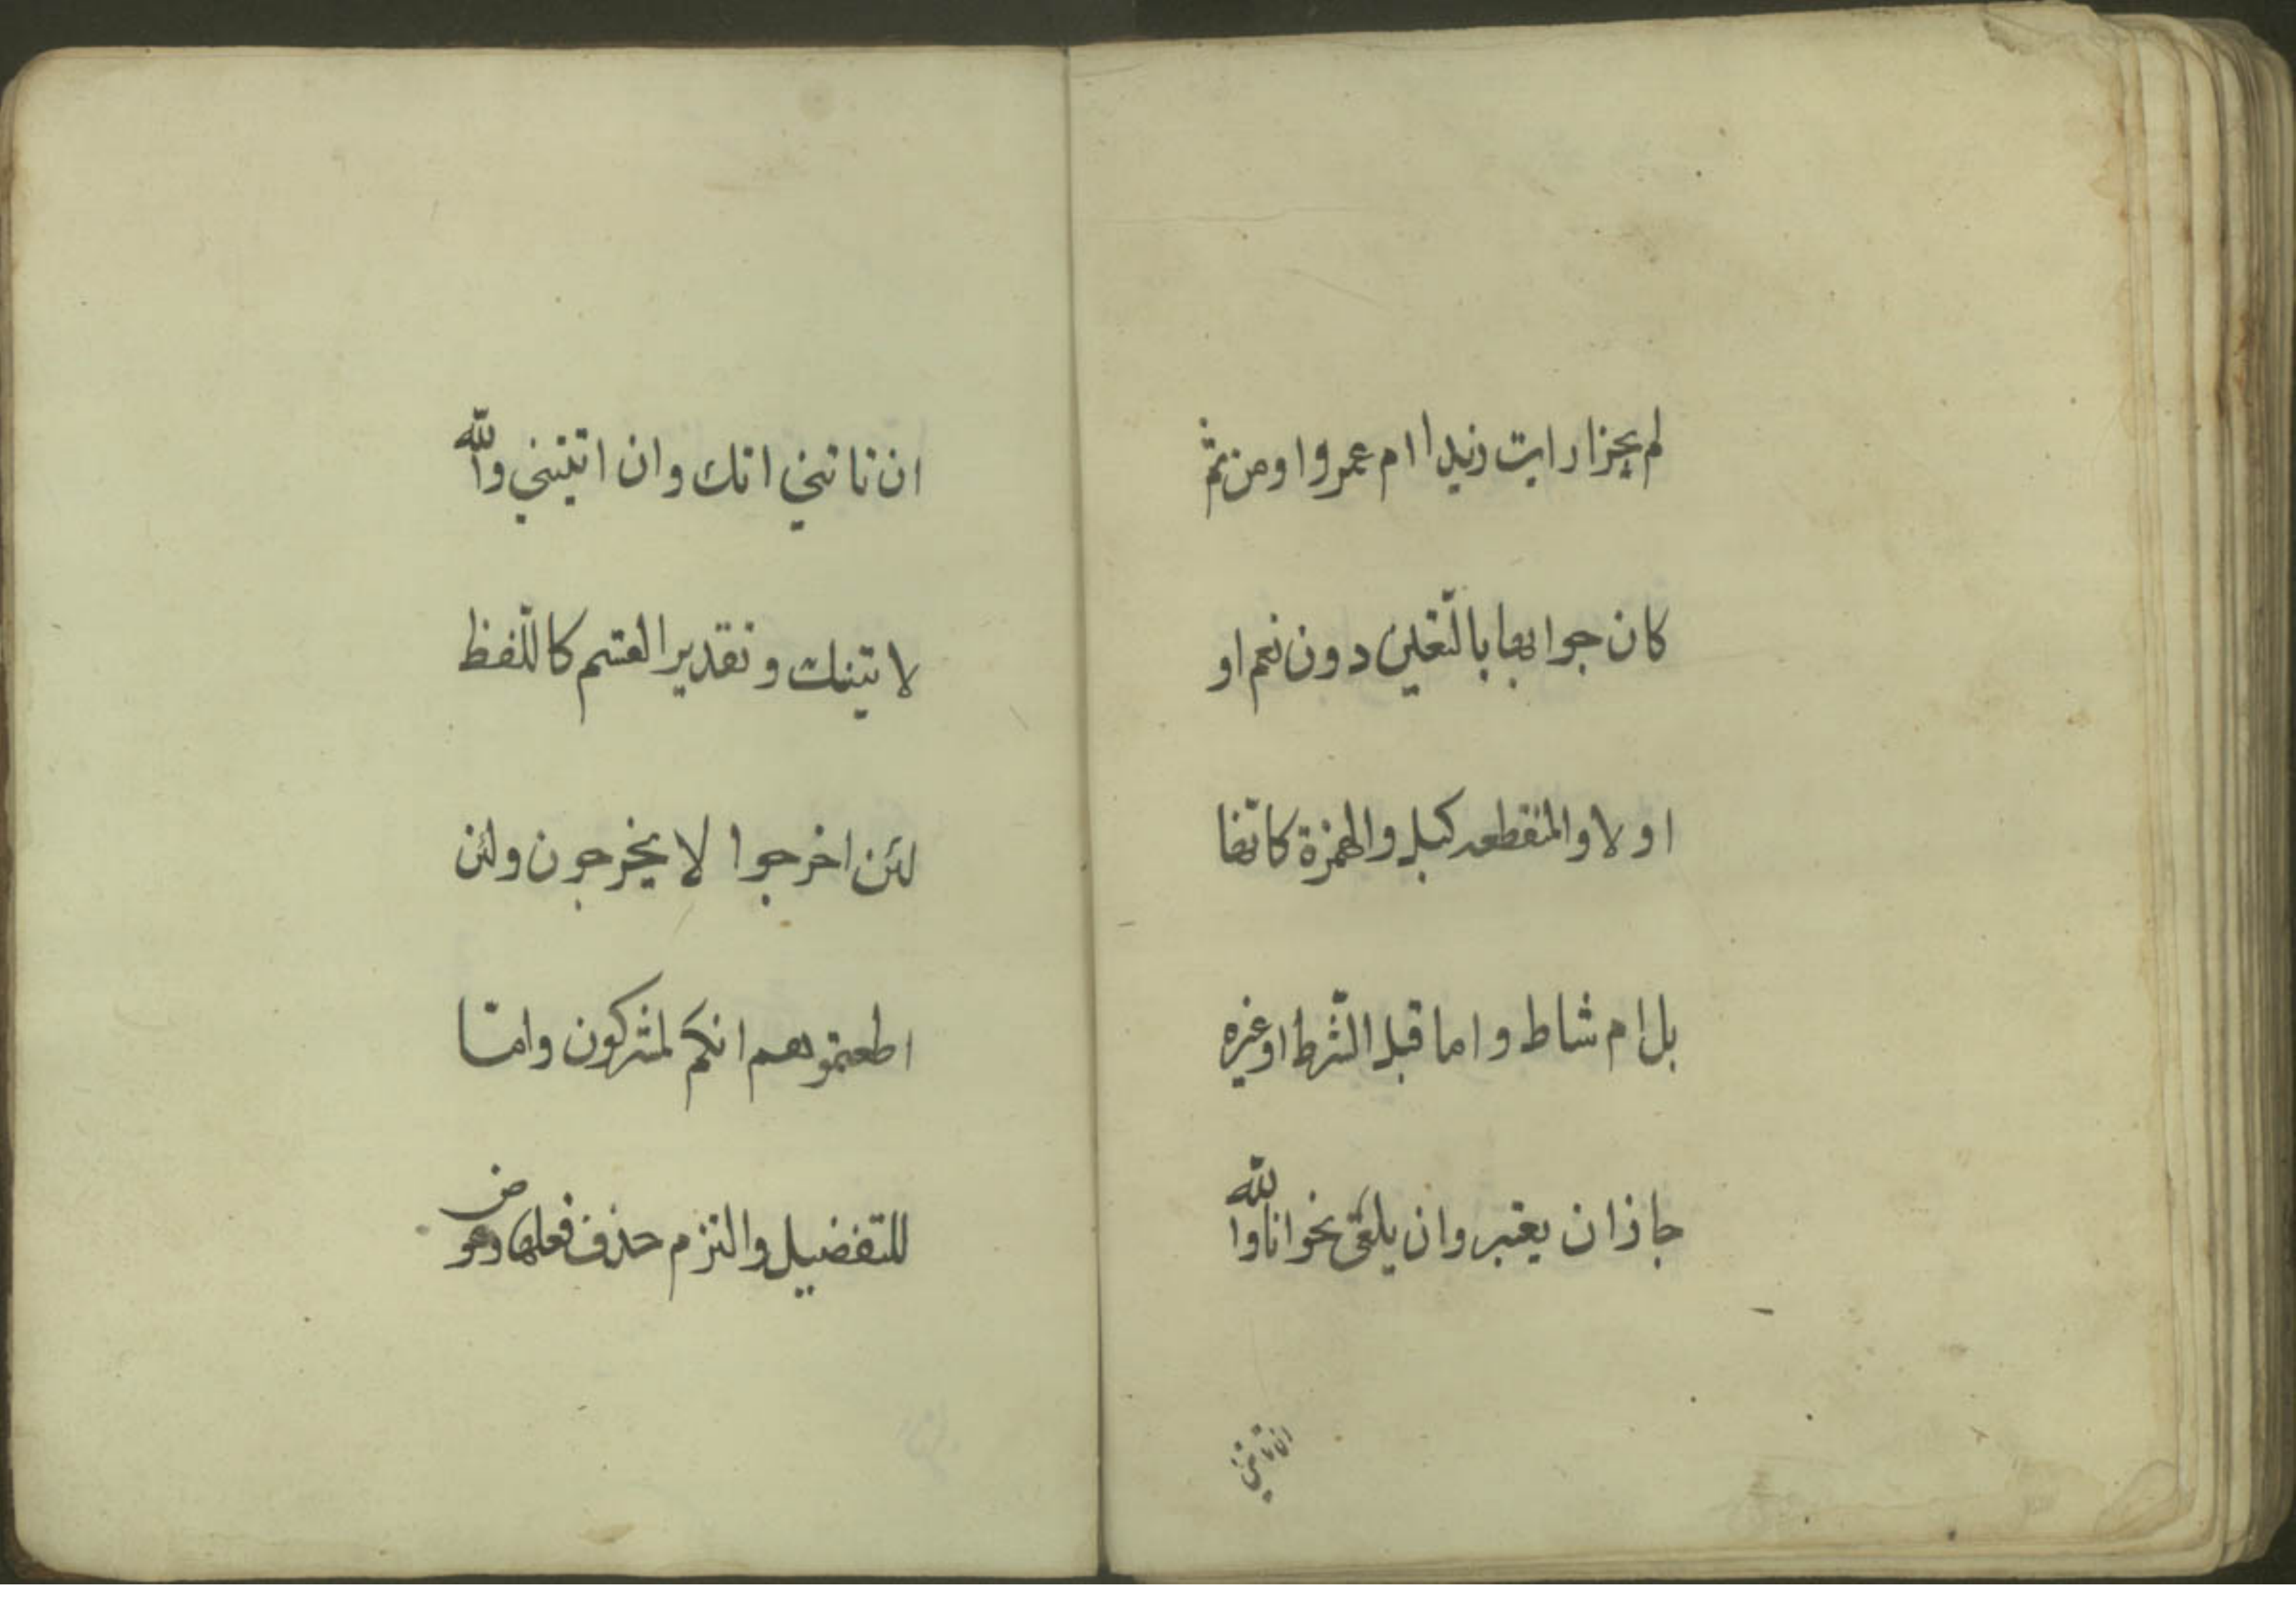 لم يجز ارايت زيدا ام عمروا ومن ثم
كان جوابها بالتعيين دون نعم او
او لا والمنقطعه كبل والهمزة كانها
بل ام شاط واما قبل الشرط او غيره
جاز ان يعتبر وان يلقى نحو انا والله
ان تاتني
ان تاتني اتك وان اتيتني والله
لاتينك وتقدير القسم كاللفظ
لئن اخرجوا لا يخرجون ولئن
اطعتموهم انكم لمشركون وامّا
للتفضيل والتزم حذف فعلها وعوض